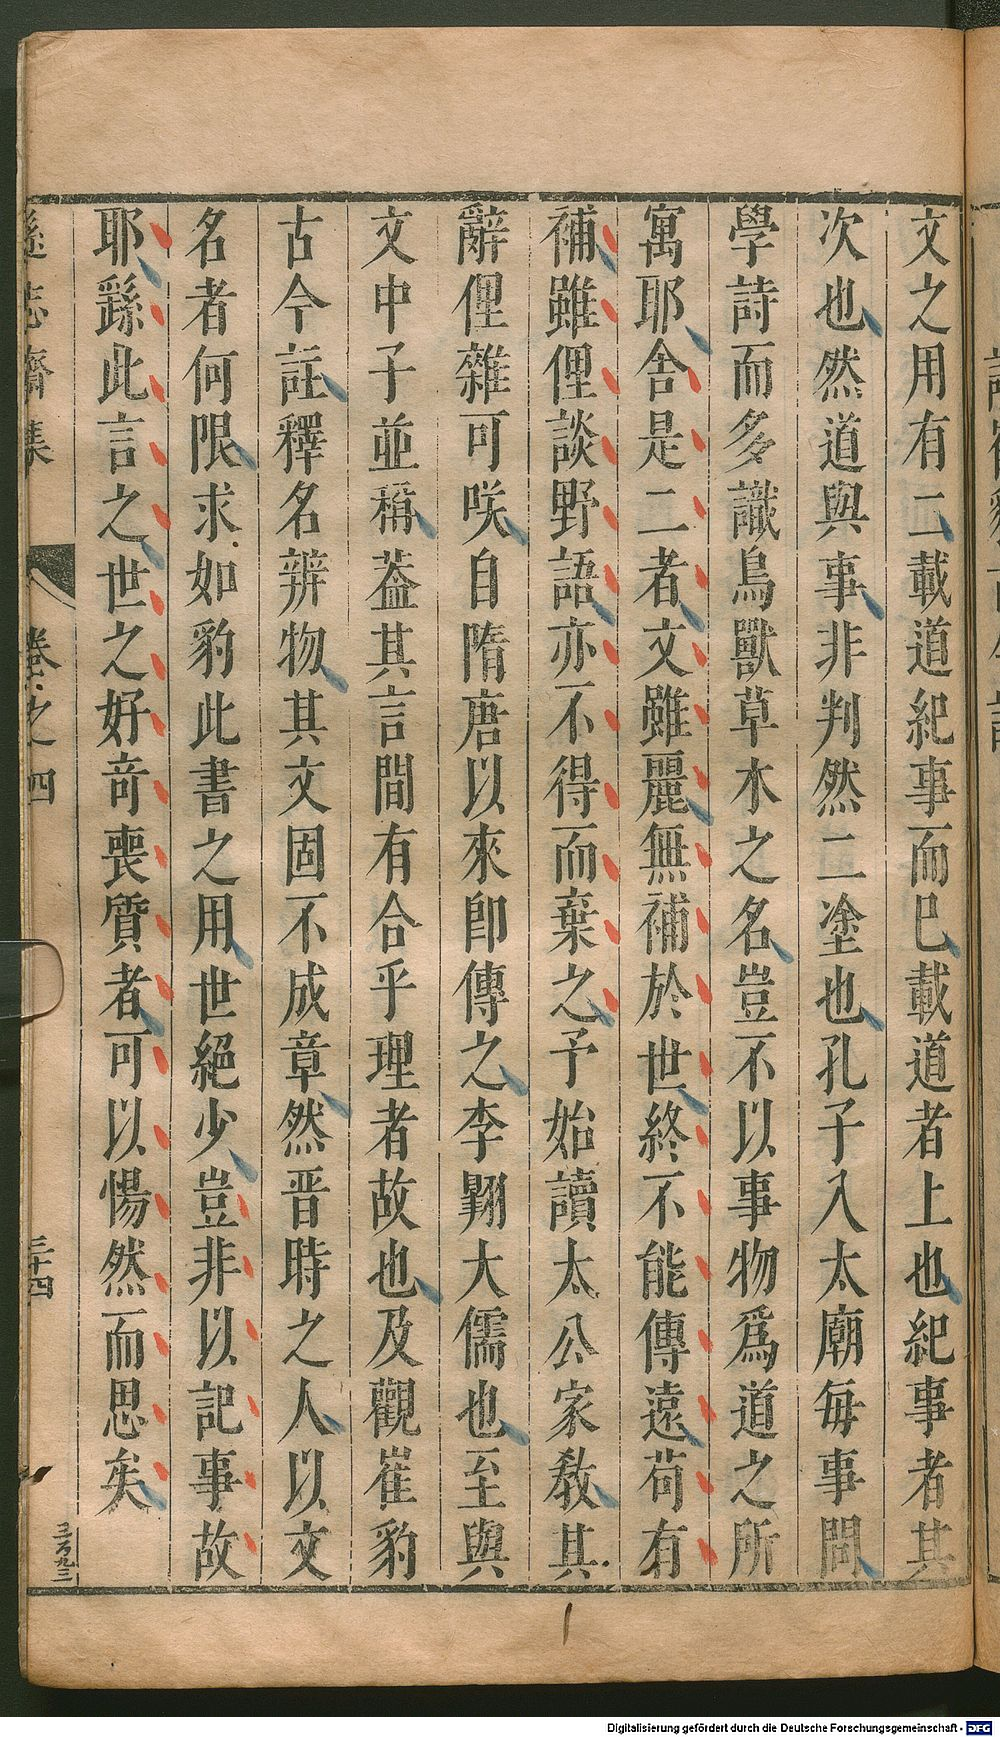 文之用有二載道紀事而已載道者上也紀事者其
次也然道與事非判然二塗也孔子入太廟每事問
學詩而多識鳥獸草木之名豈不以事物爲道之所
寓耶舍是二者文雖麗無補於世終不能傳遠茍有
補雖俚談野語亦不得而棄之予始讀太公家敎其
辭俚雜可咲自隋唐以來卽傳之李翺大儒也至與
文中子並稱葢其言間有合乎理者故也及觀崔豹
古今註釋名辨物其文固不成章然晋時之人以文
名者何限求如豹此書之用世絕少豈非以記事故
耶繇此言之世之好竒喪質者可以惕然而思矣
遜志齋集
卷之四
三十四
Digitalisierung gefördert durch die Deutsche Forschungsgemeinschaft - DFG